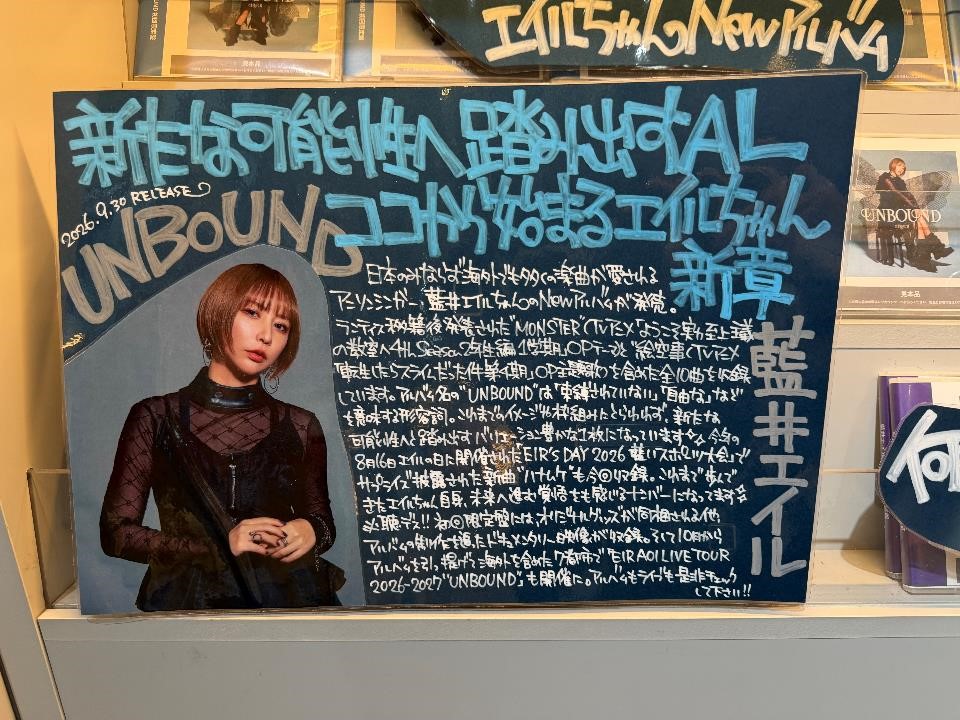 エイルちゃんNewアルバム
新たな可能性へ踏み出すAL
2026.9.30 RELEASE
UNBOUND
ココから始まるエイルちゃん
新章
藍井エイル
日本のみならず海外でも多くの楽曲が愛される
アニソンシンガー、藍井エイルちゃんのNewアルバムが発売。
ランティス移籍後発表された"MONSTER"(TVアニメ『ようこそ実力至上主義
の教室へ4th Season 2年生編1学期』OPテーマ)と"絵空事"(TVアニメ
『転生したらスライムだった件 第4期』OP主題歌)を含めた全10曲を収録
しています。アルバム名の"UNBOUND"は「束縛されていない」「自由な」など
を意味する形容詞。これまでのイメージや枠組みにとらわれず、新たな
可能性へと踏み出すバリエーション豊かな1枚になっています。今年の
8月16日エイルの日に開催された『EIR'S DAY 2026 藍いスポーツ大会』で
サプライズ披露された新曲"ハナムケ"も今回収録。これまで歩んで
きたエイルちゃん自身、未来へ進む覚悟をも感じるナンバーになってます
必聴デス!! 初回限定盤には、オリジナルグッズが同梱される他、
アルバムの制作を追ったドキュメンタリー映像が収録。そして10月から
アルバムを引っ提げて海外を含めた7都市で『EIR AOI LIVE TOUR
2026-2027 "UNBOUND"』も開催に。アルバムもライブも是非チェック
して下さい!!
UNBOUND
見本品
見本品
何